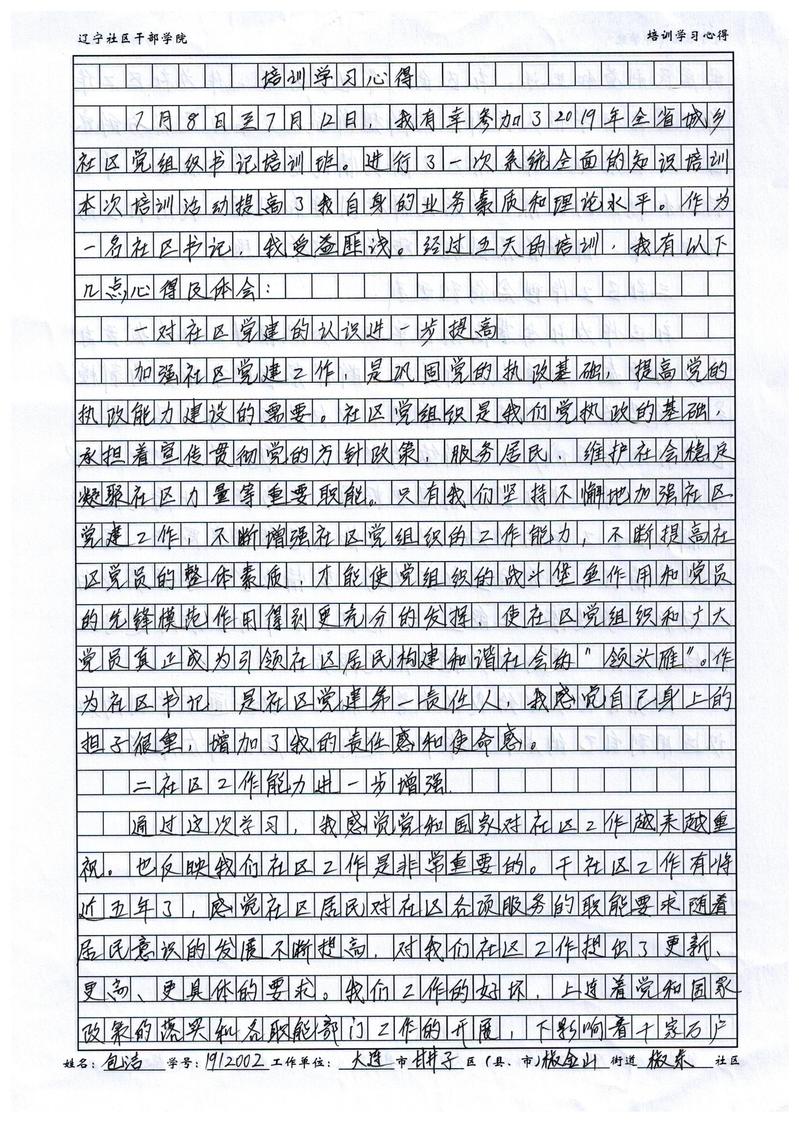 辽宁社区干部学院 培训学习心得
培训学习心得
7月8日至7月12日，我有幸参加了2019年全省城乡
社区党组织书记培训班。进行了一次系统全面的知识培训
本次培训活动提高了我自身的业务素质和理论水平。作为
一名社区书记，我受益匪浅。经过五天的培训，我有以下
几点心得及体会：
一对社区党建的认识进一步提高
加强社区党建工作，是巩固党的执政基础，提高党的
执政能力建设的需要。社区党组织是我们党执政的基础，
承担着宣传贯彻党的方针政策，服务居民，维护社会稳定
凝聚社区力量等重要职能。只有我们坚持不懈地加强社区
党建工作，不断增强社区党组织的工作能力，不断提高社
区党员的整体素质，才能使党组织的战斗堡垒作用和党员
的先锋模范作用得到更充分的发挥，使社区党组织和广大
党员真正成为引领社区居民构建和谐社会的“领头雁”。作
为社区书记，是社区党建第一责任人，我感觉自己身上的
担子很重，增加了我的责任感和使命感。
二社区工作能力进一步增强.
通过这次学习，我感觉党和国家对社区工作越来越重
视。也反映我们社区工作是非常重要的。干社区工作有将
近五年了，感觉社区居民对社区各项服务的职能要求随着
居民意识的发展不断提高，对我们社区工作提出了更新、
更高、更具体的要求。我们工作的好坏，上连着党和国家
政策的落实和各职能部门工作的开展，下影响着千家万户
姓名：包洁 学号：1912002 工作单位：大连市甘井子区（县、市）椒金山街道椒东社区